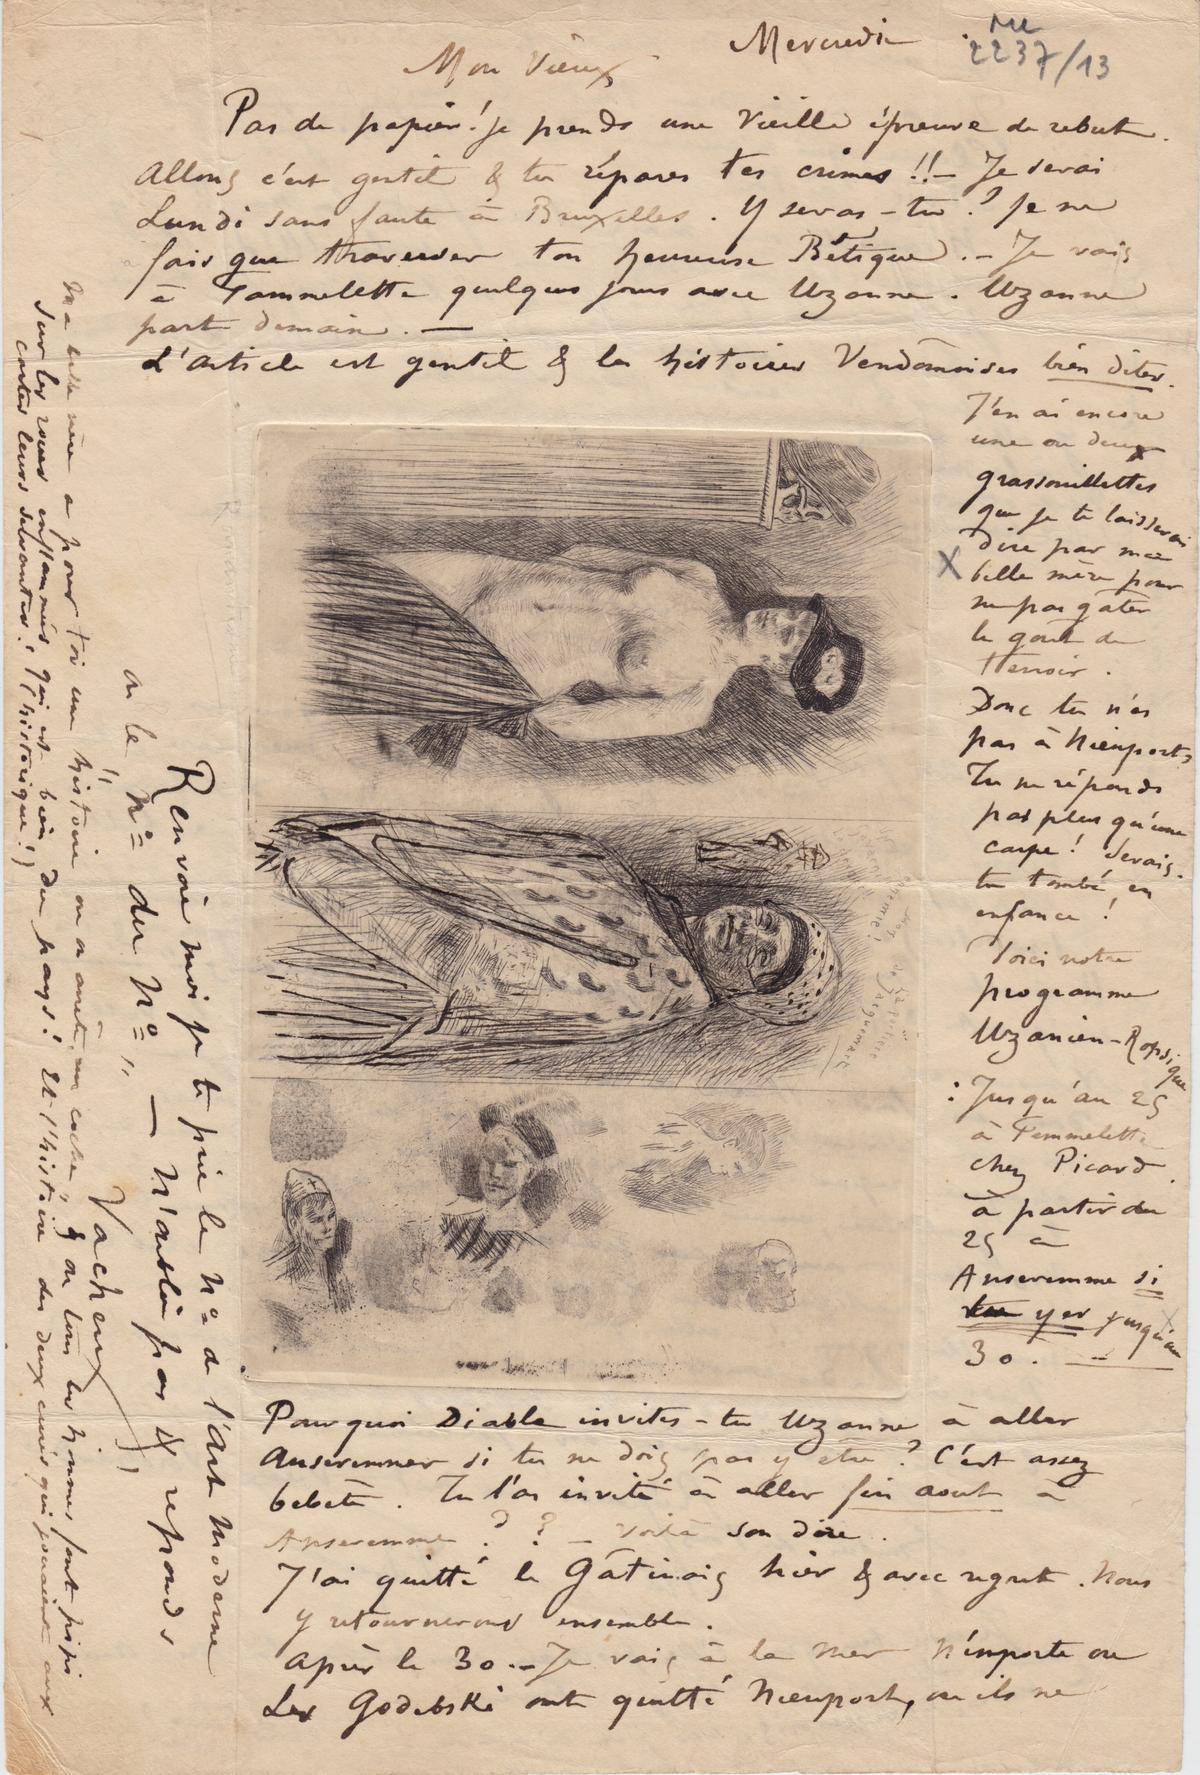 Mercredi
ML
2237/13
Mon Vieux
Pas de papier! je prends une vieille épreuve de rebut.
Allons c'est gentil & tu répares tes crimes !!— Je serai
Lundi sans faute à Bruxelles. Y seras-tu? Je ne
fais que traverser ton heureuse Bétique. — Je vais
à Femmelette quelques jours avec Uzanne. Uzanne
part demain. —
L'article est gentil & les histoires Vendômoises bien dites.
J'en ai encore
une ou deux
grassouillettes
que je te laisserai
dire par ma
X belle mère pour
ne pas gâter
le goût du
terroir.
Donc tu n'es
pas à Nieuport,
Tu ne réponds
pas plus qu'une
carpe! Serais-
tu tombé en
enfance!
Voici notre
programme
Uzanien-Ropsique
: Jusqu'au 25
à Femmelette
chez Picard.
à partir du
25 à
Anseremme si
tu y es jusqu'au
30. —
Pourquoi Diable invites-tu Uzanne à aller
Anseremmer si tu ne dois pas y etre? C'est assez
bebête. Tu l'as invité à aller fin aout à
Anseremme. ? ? — Voilà son dire.
J'ai quitté le Gâtinais hier & avec regret. Nous
y retournerons ensemble.
Après le 30. — Je vais à la mer n'importe ou
Les Godebski ont quitté Nieuport, ou ils ne
Renvoie moi je te prie le nº de l'art moderne
ou le "nº du nº" — N'oublie pas & reponds
Vacheux!
Ma belle mère a pour toi une histoire ou on arrête un caché, & ou tous les hommes font pipi
sur les roues enflammées qui est bien du pays! Et l'histoire des deux curés qui jouaient aux
cartes leurs servantes! (historique!)
La portière
de Jacquemart